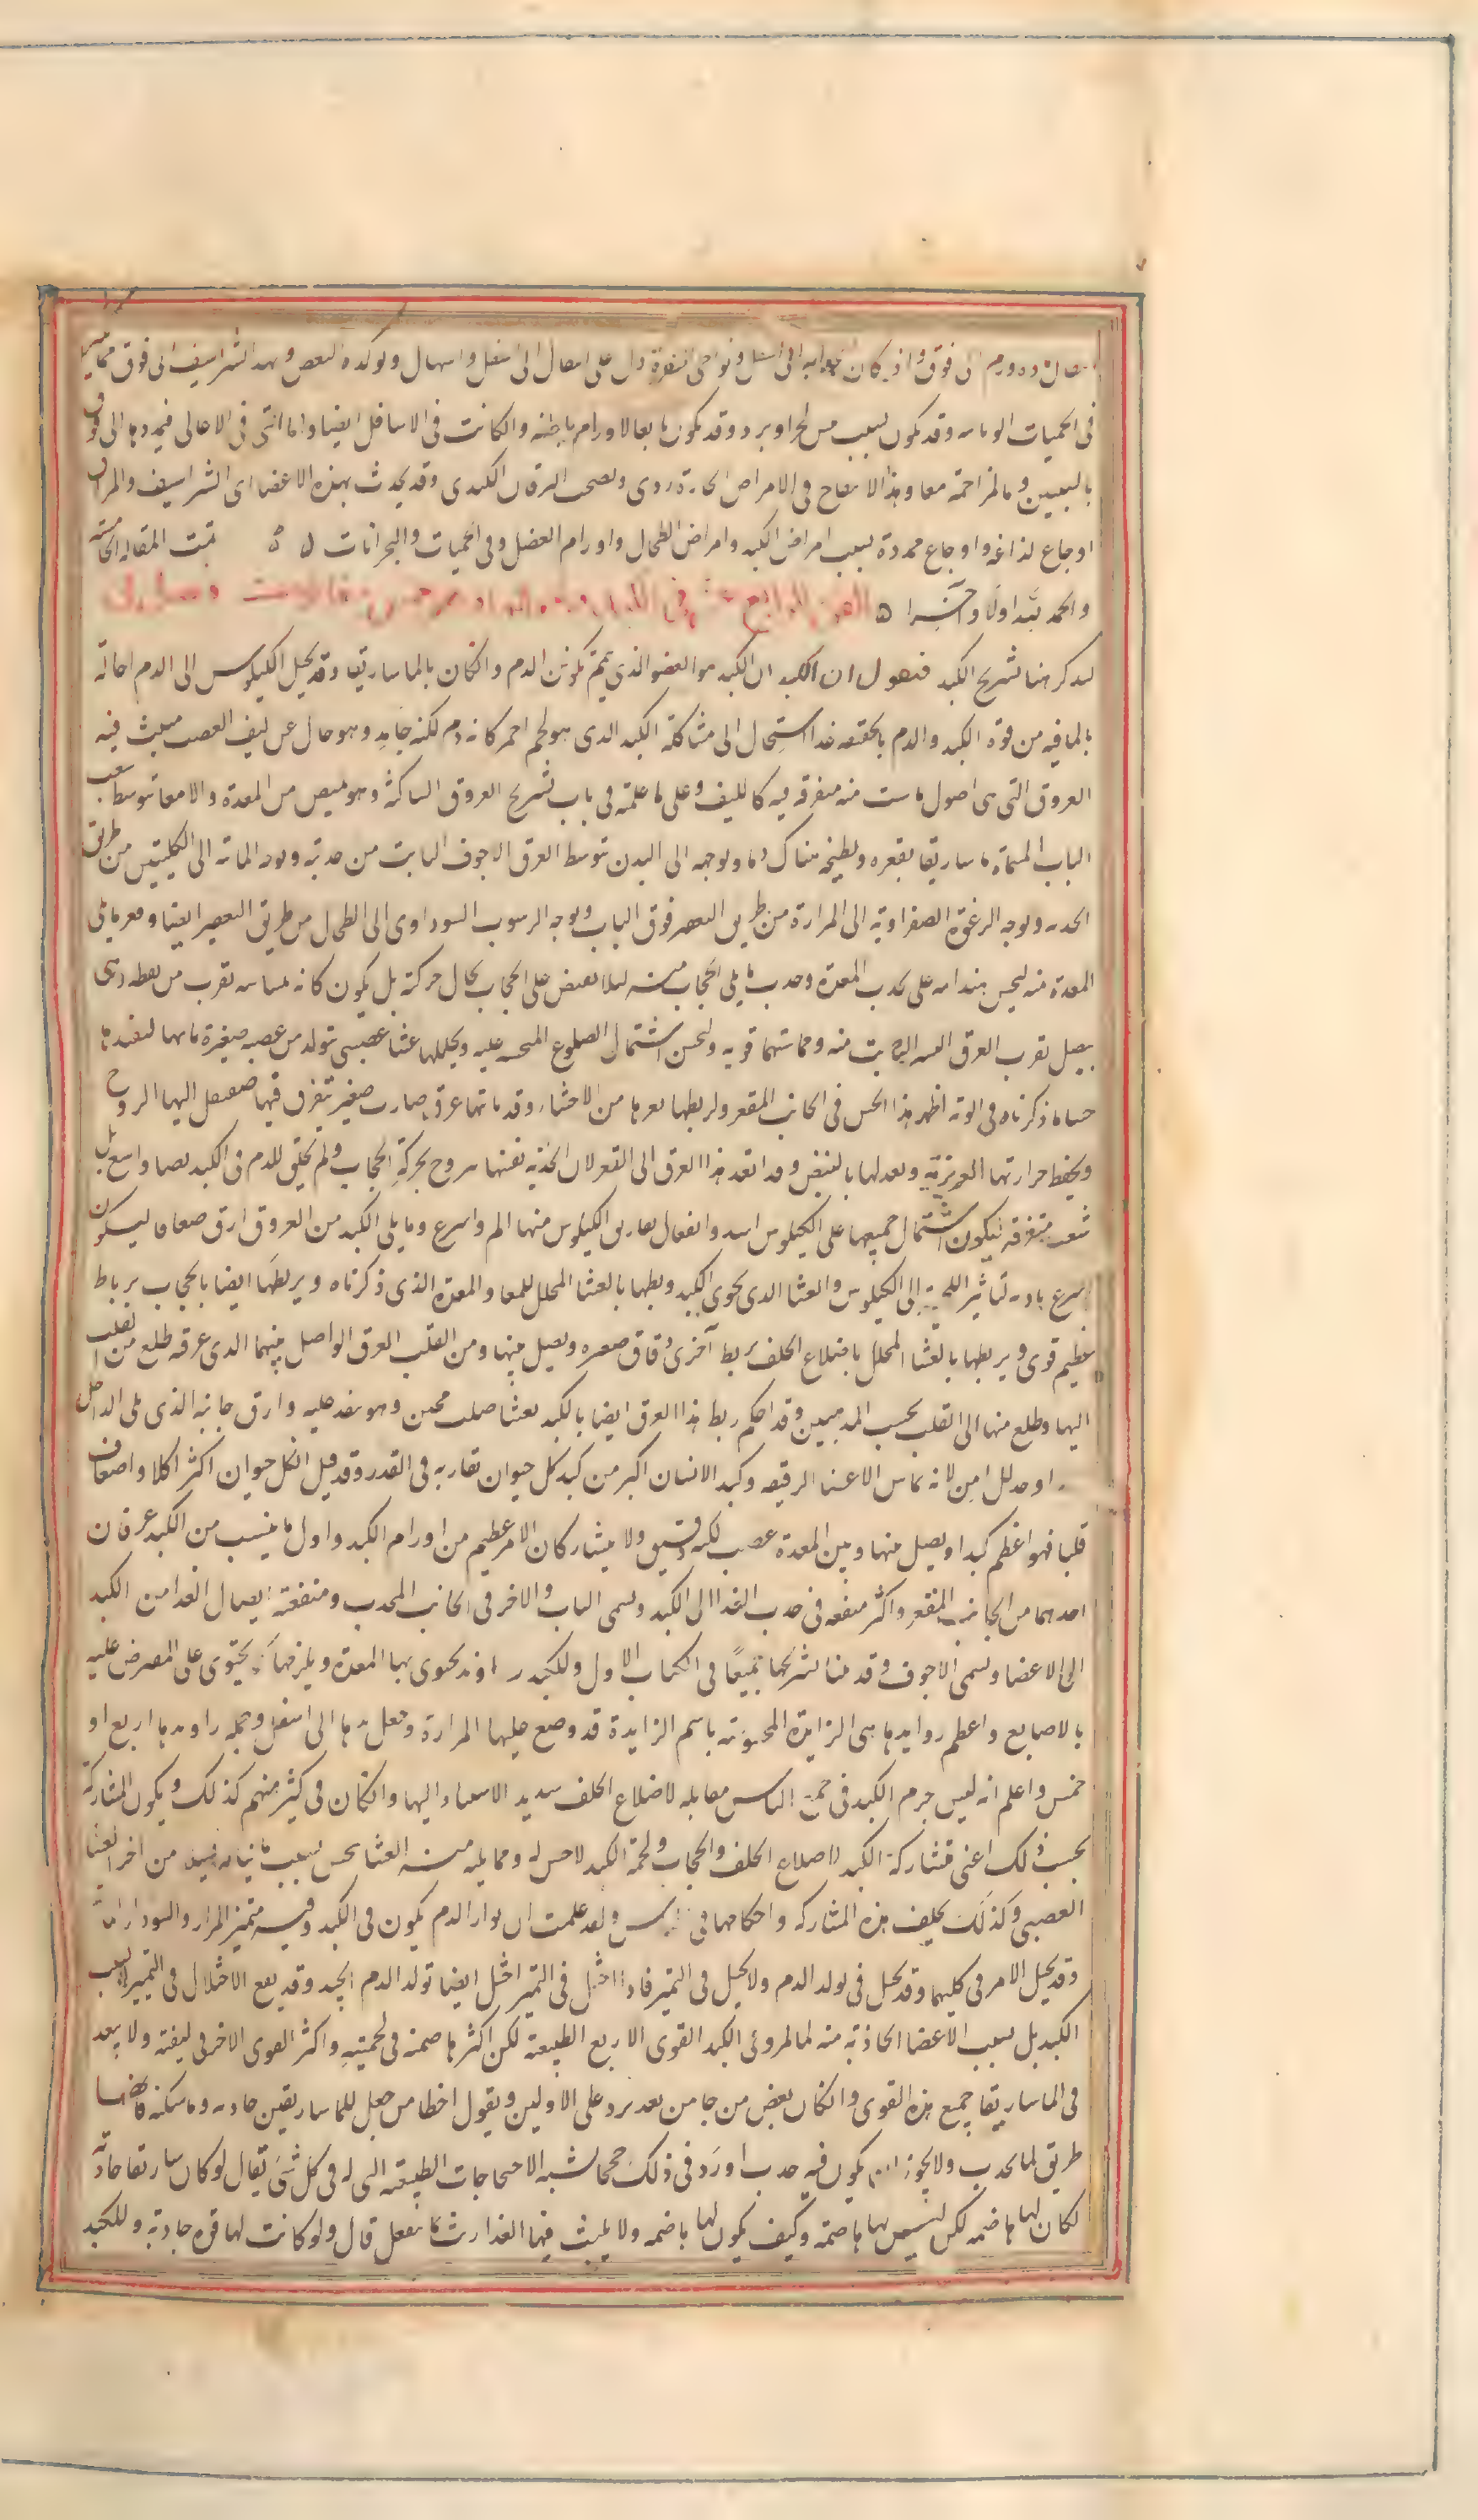 فوق واذ كان الى اسفل ونواحى السرة دل على انتقال الى اسفل واسهال ويؤكده المغص وتمدد الشراسيف الى فوق
فى الحميات الوبائية وقد يكون بسبب يبس لحر او برد وقد يكون تابعا لاورام باطنة وان كانت فى الاسافل ايضا واما التى فى الاعالى فيمددها الى فوق
بالسببين وبالمزاحمة معا وهذا الانتفاخ فى الامراض الحادة ردى ويصحب اليرقان الكبدى وقد يحدث بهذه الاعضا اى الشراسيف والمراق
اوجاع لذاعة واوجاع ممددة بسبب امراض الكبد وامراض الطحال واورام العضل وفى الحميات والبحرانات تمت المقالة
والحمد لله اولا وآخرا الفن الرابع عشر فى الكبد
لنذكر هنا تشريح الكبد فنقول ان الكبد هو العضو الذى يتمم تكون الدم وان كان بالماساريقا وقد يحيل الكيلوس الى الدم احالة
بما فيه من قوة الكبد والدم بالحقيقة غذا استحال الى مشاكلة الكبد الذى هو لحم احمر كانه دم لكنه جامد وهو خال عن ليف العصب منبث فيه
العروق التى هى اصول ما ينبت منه متفرقة فيه كالليف وعلى ما علمته فى باب تشريح العروق الساكنة وهو يمتص من المعدة والامعا بتوسط شعب
الباب المسماة ماساريقا بتقعيره ويطبخه هناك دما ويوجهه الى البدن بتوسط العرق الاجوف النابت من حدبته ويوجه المائية الى الكليتين من طريق
الحدبة ويوجه الرغوة الصفراوية الى المرارة من طريق التقعير فوق الباب ويوجه الرسوب السوداوى الى الطحال من طريق التقعير ايضا وقعر ما يلى
المعدة منه ليحسن هندامه على تحدب المعدة وحدب ما يلى الحجاب منه لئلا يضيق على الحجاب مجال حركته بل يكون كانه يماسه بقرب من نقطة وهى
يتصل بقرب العرق النابت منه ومماستهما قوية وليحسن اشتمال الضلوع المنحنية عليه ويجللها غشا عصبى يتولد من عصبة صغيرة ياتيها ليفيدها
حسا ما ذكرناه فى الرية اظهر هذا الحس فى الجانب المقعر وليربطها بغيرها من الاحشاء وقد ياتيها عرق ضارب صغير يتفرق فيها فينقل اليها الروح
ويحفظ حرارتها الغريزية ويعدلها بالنبض وقد انفذ هذا العرق الى القعر لان الحدبة نفسها تتروح بحركة الحجاب ولم يخلق للدم فى الكبد فضا واسع بل
شعب متفرقة ليكون اشتمال جميعها على الكيلوس اشد وانفعال تفاريق الكيلوس منها اتم واسرع وما يلى الكبد من العروق ارق صفاقا ليكون
اسرع تادية لتاثير اللحمية الى الكيلوس والغشا الذى يحوى الكبد يربطها بالغشا المجلل للمعا والمعدة الذى ذكرناه ويربطها ايضا بالحجاب برباط
عظيم قوى ويربطها بالغشا المجلل باضلاع الخلف بربط آخرى دقاق صغيرة ويصل بينها ومن القلب العرق الواصل بينهما الذى عرفته طلع من القلب
اليها وطلع منها الى القلب بحسب المذهبين وقد احكم ربط هذا العرق ايضا بالكبد بغشا صلب ثخين وهو ينفذ عليه وارق جانبه الذى يلى الداخل
لانه يماس الاعضا الرقيقة وكبد الانسان اكبر من كبد كل حيوان يقاربه فى القدر وقد قيل ان كل حيوان اكثر اكلا واضعف
قلبا فهو اعظم كبدا ويصل بينها وبين المعدة عصب لكنه دقيق ولا يتشاركان الا لامر عظيم من اورام الكبد واول ما ينبت من الكبد عرقان
احدهما من الجانب المقعر واكثر منفعته فى جذب الغذا الى الكبد ويسمى الباب والاخر فى الجانب المحدب ومنفعته ايصال الغذا من الكبد
الى الاعضا ويسمى الاجوف وقد بينا تشريحهما جميعًا فى الكتاب الاول وللكبد زوايد يحتوى بها المعدة ويلزمها كما يحتوى على المقبوض عليه
بالاصابع واعظم زوايدها هى الزايدة المخصوصة باسم الزايدة قد وضع عليها المرارة وجعل مدها الى اسفل وجملة زوايدها اربع او
خمس واعلم انه ليس جرم الكبد فى جميع الناس مقابله لاضلاع الخلف شديد الاستناد اليها وان كان فى كثير منهم كذلك ويكون المشاركة
بحسب ذلك اعنى مشاركة الكبد لاضلاع الخلف والحجاب ولحمة الكبد لا حس له وما يليه منه الغشا يحس بسبب ما يناله من اخر الغشا
العصبى وكذلك يختلف هذه المشاركة واحكامها فى الناس ولقد علمت ان تولد الدم يكون فى الكبد وفيه يتميز المرار والسودا والمائية
وقد يختل الامر فى كليهما وقد يختل فى تولد الدم ولا يختل فى التميز فاذا اختل فى التميز اختل ايضا تولد الدم الجيد وقد يقع الاختلال فى التميز لا بسبب
الكبد بل بسبب الاعضا الجاذبة منه لما تميز وفى الكبد القوى الاربع الطبيعية لكن اكثرها ضمنه فى لحميته واكثر القوى الاخر فى ليفه ولا يبعد
فى الماساريقا جميع هذه القوى وان كان بعض من جا من بعد يرد على الاولين ويقول اخطا من جعل للماساريقا جاذبة وماسكة فانها
طريق لما يجذب ولا يجوز ان يكون فيه جذب واورد فى ذلك حججا تشبه الاحتجاجات الضعيفة التى له فى كل شى يقال لو كان للماساريقا جاذبة
لكان لها هاضمة لكن ليس لها هاضمة وكيف يكون لها هاضمة ولا يلبث فيها الغذا ريث ما ينفعل قال ولو كانت لها قوة جاذبة وللكبد